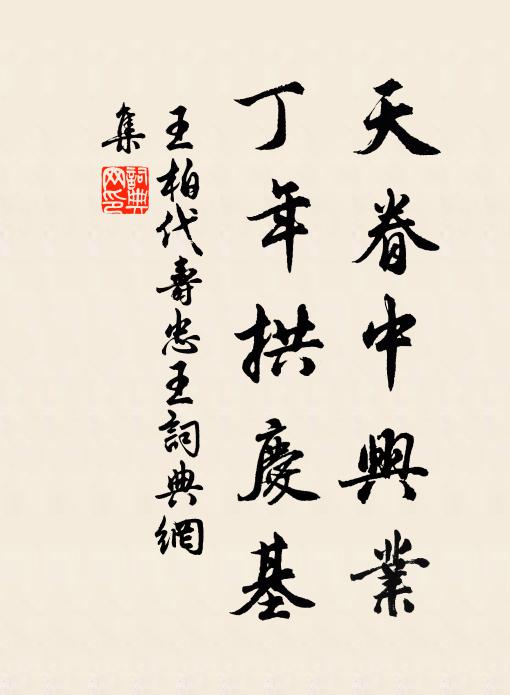 天眷中興業
丁年拱慶基
王柏代壽忠王詞典網
集
詞典
网印